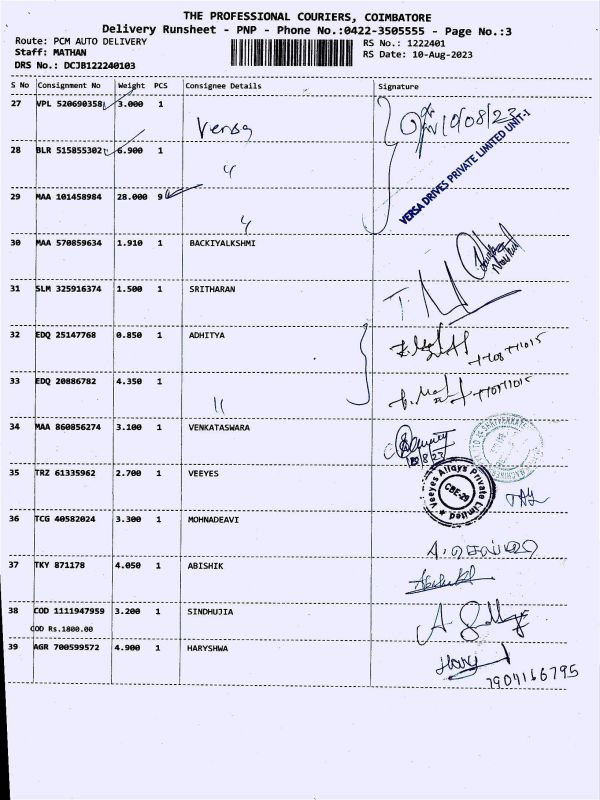 THE PROFESSIONAL COURIERS, COIMBATORE
Delivery Runsheet - PNP - Phone No.:0422-3505555 - Page No.:3
Route: PCM AUTO DELIVERY
RS No.: 1222401
Staff: MATHAN
RS Date: 10-Aug-2023
DRS No.: DCJB122240103
S No Consignment No Weight PCS Consignee Details Signature
27 VPL 520690358 3.000 1 Versa
10/08/23
VERSA DRIVES PRIVATE LIMITED UNIT-1
28 BLR 515855302 6.900 1 "
29 MAA 101458984 28.000 9 "
30 MAA 570859634 1.910 1 BACKIYALKSHMI
31 SLM 325916374 1.500 1 SRITHARAN
32 EDQ 25147768 0.850 1 ADHITYA
33 EDQ 20886782 4.350 1 "
34 MAA 860856274 3.100 1 VENKATASWARA
10/8/23
35 TRZ 61335962 2.700 1 VEEYES
Veeyes Alloys Private Limited
CBE-29
36 TCG 40582024 3.300 1 MOHNADEAVI
37 TKY 871178 4.050 1 ABISHIK
38 COD 1111947959 3.200 1 SINDHUJIA
COD Rs.1800.00
39 AGR 700599572 4.900 1 HARYSHWA
Hary
7904166795